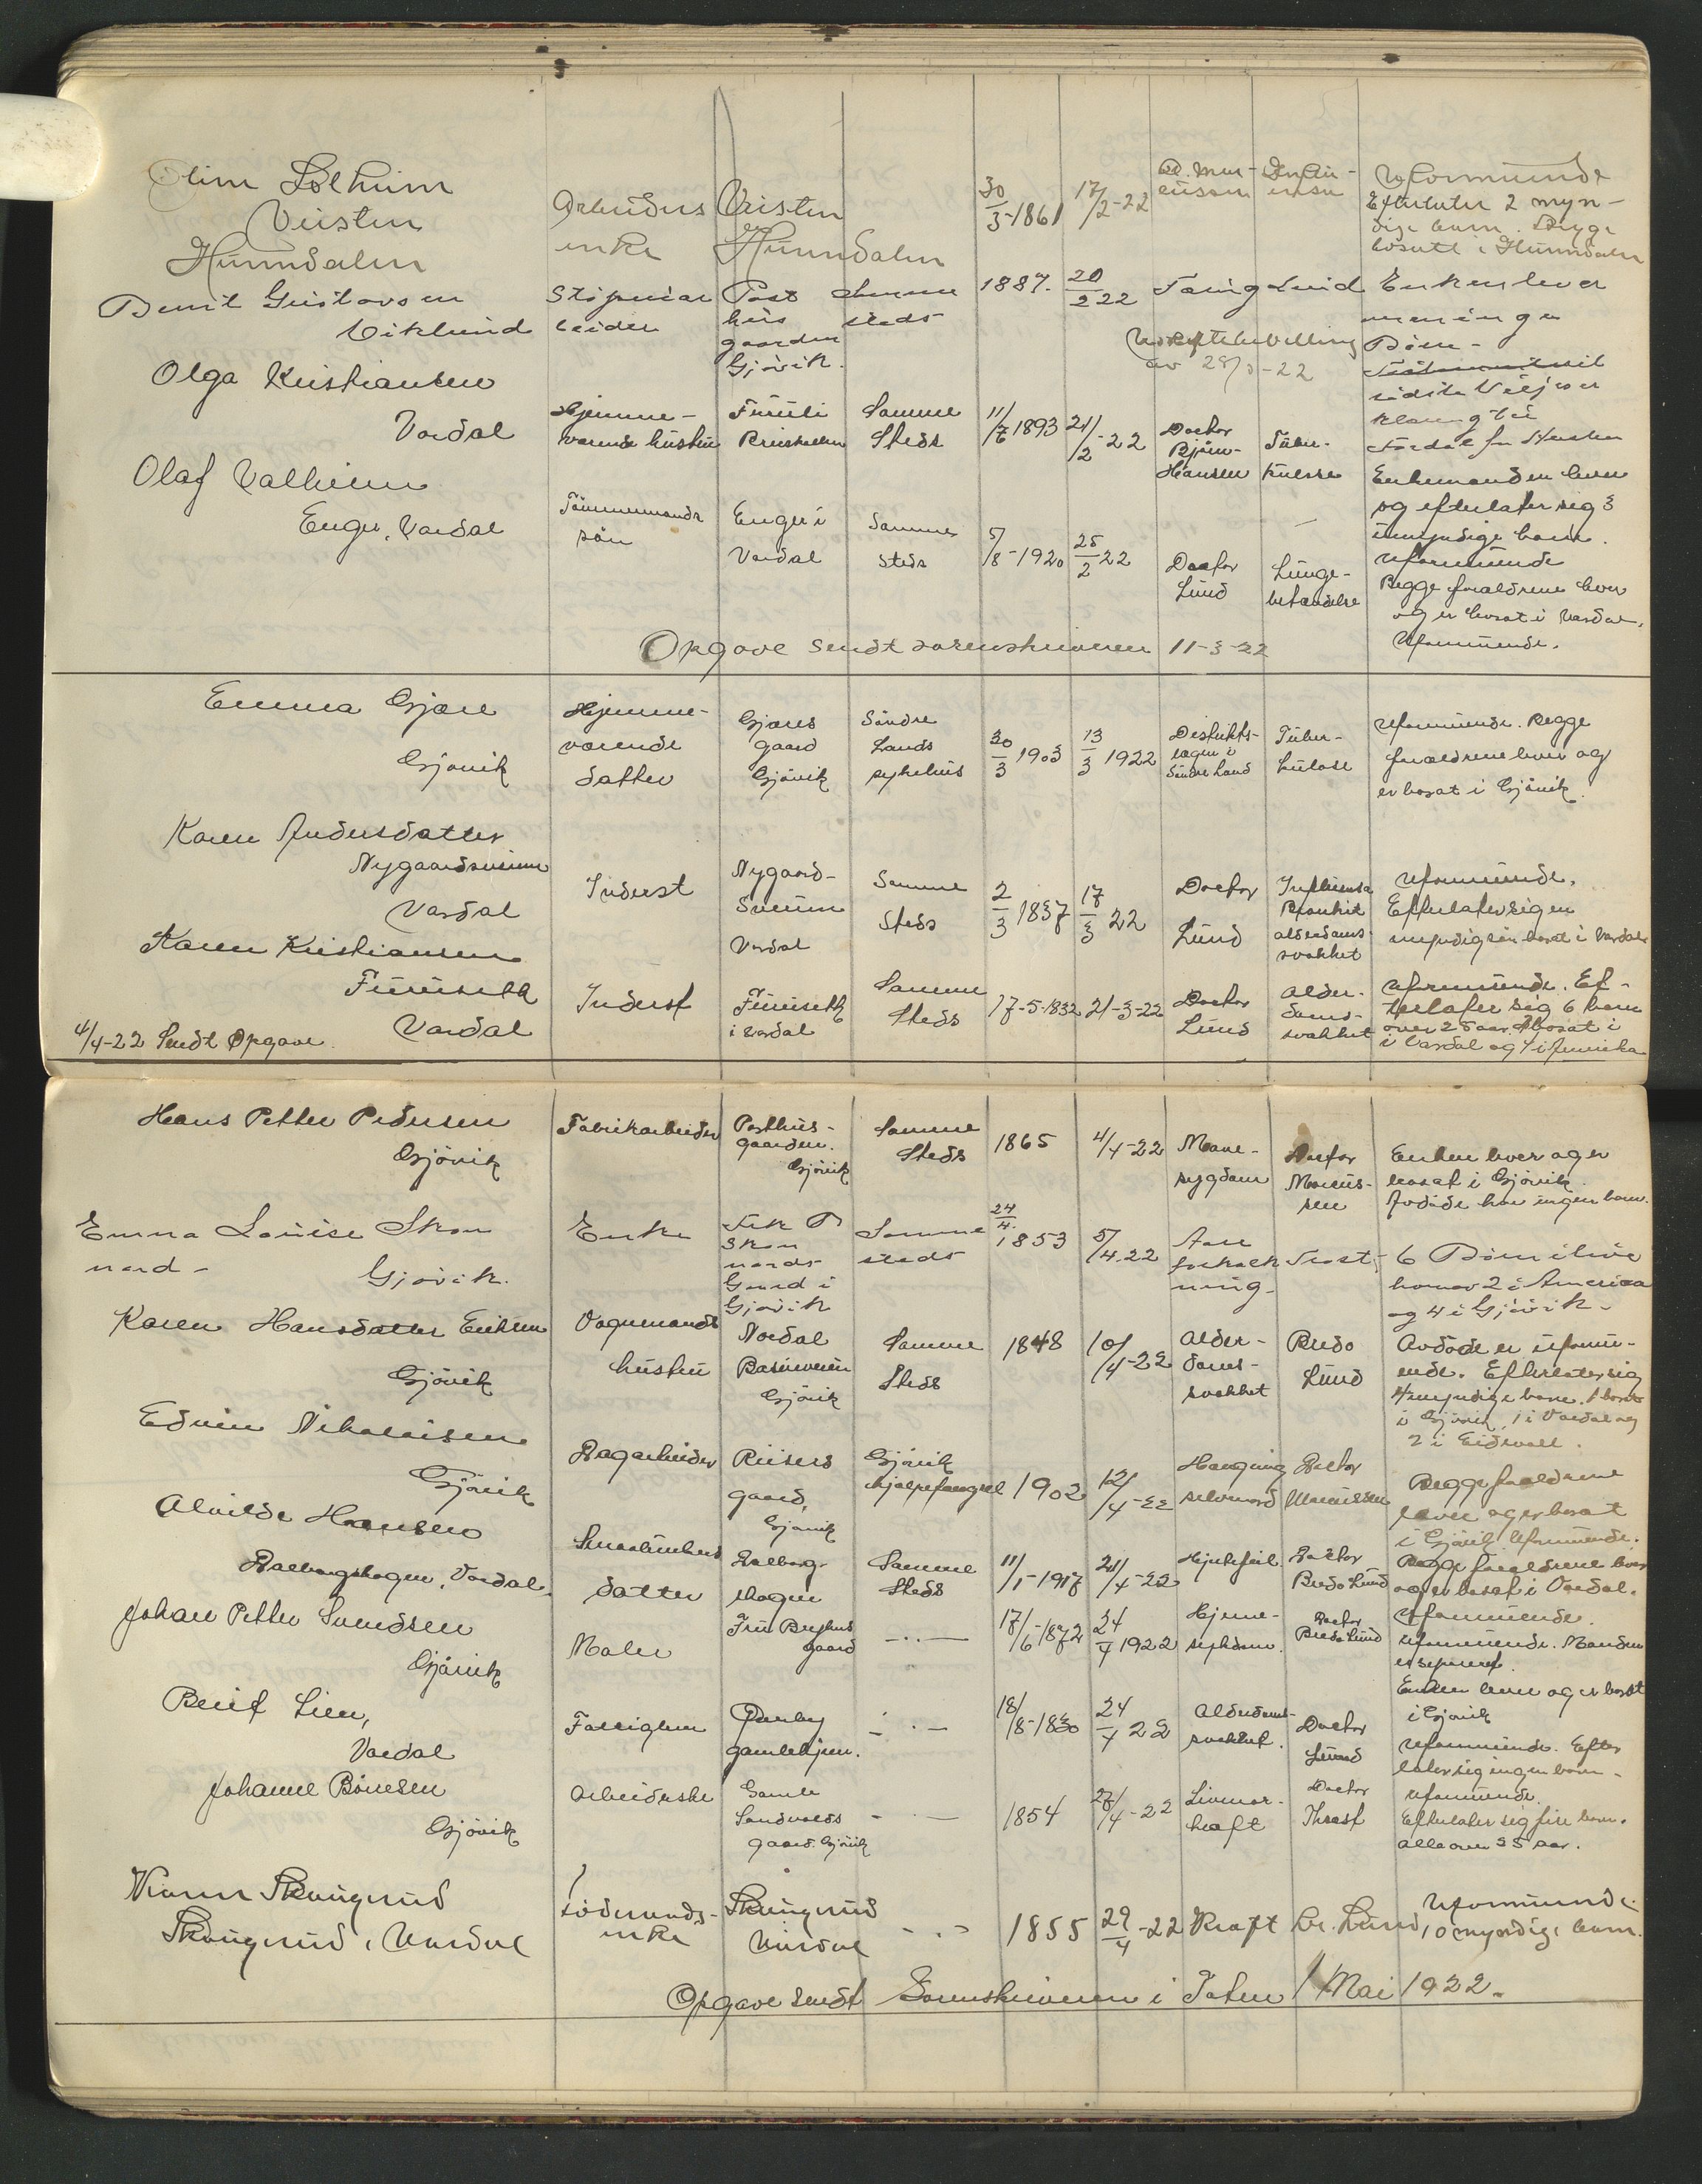 Solheim
Veisten
Hunndalen
Arbeiders
enke
Veisten
Hunndalen
30/3-1861
17/2-22
Uformuende
Efterlater 2 myn-
dige barn. Begge
bosatt i Hunndalen
Bernt Gustavsen
Viklund
Støperiar
beider
Post
hus
gaarden
Gjøvik.
Samme
steds
1887.
20/2 22
Tæring
Lund
Enken lever
men ingen
Børn -
Olga Kristiansen
Vardal
Hjemme-
værende hustru
Furuli
Samme
Steds
11/7 1893
21/2-22
Doctor
Bjørn-
Hansen
Tuber-
kulose
Enkemanden lever
og efterlater sig 3
umyndige barn.
Uformuende
Olaf Valheim
Enger, Vardal
Tømmermands
søn
Enger i
Vardal
Samme
steds
5/8-1920
25/2 22
Doctor
Lund
Lunge-
betændelse
Begge forældrene lever
og er bosat i Vardal.
Uformuende.
Opgave sendt sorenskriveren 11-3-22
Emma Gjære
Gjøvik
Hjemme-
værende
datter
Gjæres
gaard
Gjøvik
Søndre
Lands
sykehus
30/3 1903
13/3 1922
Distrikts-
lægen i
Søndre Land
Tuber-
kulose
Uformuende. Begge
forældrene lever og
er bosat i Gjøvik.
Karen Andersdatter
Nygaardsveien
Vardal
Inderst
Nygaard-
Sveum
Vardal
Samme
Steds
2/3 1837
17/3 22
Doctor
Lund
Influensa
Bronkit
alderdoms-
svakhet
Uformuende.
Efterlater sig en
myndig søn bosat i Vardal
Karen Kristiansen
Furuseth
Vardal
Inderst
Furuseth
i Vardal
Samme
Steds
17-5-1832
21-3-22
Doctor
Lund
Alder-
doms-
svakhet
Uformuende. Ef-
terlater sig 6 barn
over 25 aar bosat i
i Vardal og 4 i Amerika
4/4-22 Sendt Opgave.
Hans Petter Pedersen
Gjøvik
Fabrikarbeider
Posthus-
gaarden.
Gjøvik
Samme
Steds
1865
4/4-22
Mave-
sygdom
Doctor
Mariussen
Enken lever og er
bosat i Gjøvik.
Avdøde har ingen barn.
Emma Louise Skon
nord -
Gjøvik.
Enke
Skon
nords
Gaard i
Gjøvik
Samme
steds
24/4.
1853
5/4.22
Aare
forkalk
ning -
Trost,
6 Børn ilive
hvorav 2 i America
og 4 i Gjøvik -
Karen Hansdatter Eriksen
Gjøvik
Vognmands
hustru
Nordal
Gjøvik
Samme
Steds
1848
10/4-22
Alder-
doms-
svakhet
Bredo
Lund
Avdøde er uformu-
ende. Efterlater sig
4 myndige barn. 1 bosat
i Gjøvik, 1 i Vardal og
2 i Eidsvoll.
Edvin Nikolaisen
Gjøvik
Dagarbeider
Riisers
gaard,
Gjøvik
Gjøvik
hjelpefængsel
1902
12/4-22
Hængning
selvmord
Doctor
Mariussen
Begge forældrene
lever og er bosat
i Gjøvik. Uformuende.
Alvilde Hansen
Dalborgshagen, Vardal.
Smaabrukers
datter
Dalborgs-
hagen
Samme
Steds
11/1-1917
21/4-22
Hjertefeil.
Doctor
Bredo Lund
Begge forældrene lever
og er bosat i Vardal.
Uformuende.
Johan Petter Svendsen
Gjøvik
Maler
Fru Bryhns
gaard
- . . -
17/6-1872
24/4 1922
Hjerne-
sykdom.
Doctor
Bredo Lund
Uformuende. Manden
er separert.
Enken lever og er bosat
i Gjøvik
Berit Lien,
Vardal
Fattiglem
Gamlehjem.
- . -
18/8-1830
24/4 22
Alderdoms-
svakhet.
Doctor
Lund
Uformuende. Efter
later sig ingen barn -
Johanne Bønesen
Gjøvik
Arbeiderske
Gamle
Sandvolds
gaard. Gjøvik
- -
1854
27/4-22
Livmor-
kræft
Doctor
Throst
Uformuende.
Efterlater sig fire barn.
Alle over 25 aar.
Skaugrud
Skaugrud, Vardal
Føderaads-
enke
Skaugrud
Vardal
- . -
1855
29/4-22
Kræft
Dr. Lund
Uformuende
10 myndige barn.
Opgave sendt Sorenskriveren i Toten 1 Mai 1922.